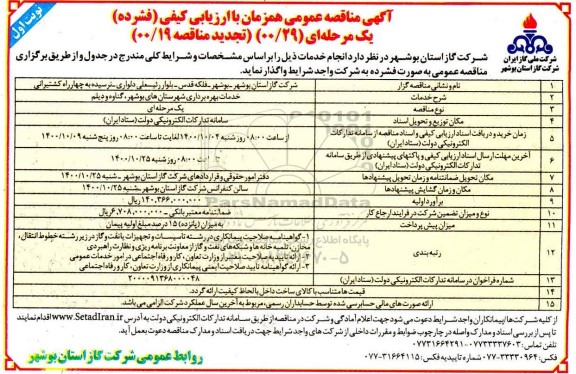 نوبت اول
آگهی مناقصه عمومی همزمان با ارزیابی کیفی (فشرده)
یک مرحله‌ای (۰۰/۲۹) (تجدید مناقصه ۰۰/۱۹)
شرکت ملی گاز ایران
شرکت گاز استان بوشهر
شرکت گاز استان بوشهر در نظر دارد انجام خدمات ذیل را بر اساس مشخصات و شرایط کلی مندرج در جدول و از طریق برگزاری
مناقصه عمومی به صورت فشرده به شرکت واجد شرایط واگذار نماید.
۱ نام و نشانی مناقصه گزار شرکت گاز استان بوشهر - بوشهر - فلکه قدس - بلوار رئیسعلی دلواری - نرسیده به چهارراه کشتیرانی
۲ شرح خدمات خدمات بهره برداری شهرستان‌های بوشهر، گناوه و دیلم
۳ نوع مناقصه یک مرحله ای
۴ مکان توزیع و تحویل اسناد سامانه تدارکات الکترونیکی دولت (ستاد ایران)
۵ زمان خرید و دریافت اسناد ارزیابی کیفی و اسناد مناقصه از سامانه تدارکات الکترونیکی دولت (ستاد ایران) از ساعت ۰۸:۰۰ روز شنبه ۱۴۰۰/۱۰/۰۴ لغایت تا ساعت ۰۸:۰۰ روز پنجشنبه ۱۴۰۰/۱۰/۰۹
۶ آخرین مهلت ارسال اسناد ارزیابی کیفی و پاکتهای پیشنهادی از طریق سامانه تدارکات الکترونیکی دولت (ستاد ایران) ساعت ۰۸:۰۰ روز شنبه ۱۴۰۰/۱۰/۲۵
۷ مکان تحویل ضمانتنامه و زمان تحویل پیشنهادها دفتر امور حقوقی و قراردادهای شرکت گاز استان بوشهر - شنبه ۱۴۰۰/۱۰/۲۵
۸ مکان و زمان گشایش پیشنهادها سالن کنفرانس شرکت گاز استان بوشهر - شنبه ۱۴۰۰/۱۰/۲۵
۹ برآورد اولیه ریال
۱۰ نوع و میزان تضمین شرکت در فرایند ارجاع کار ضمانتنامه معتبر بانکی - ۶,۷۰۸,۰۰۰,۰۰۰ ریال
۱۱ میزان پیش پرداخت به میزان (پانزده) ۱۵ درصد مبلغ اولیه پیمان
۱۲ رتبه بندی
۱- گواهینامه صلاحیت پیمانکاری در رشته تاسیسات و تجهیزات یا نفت و گاز در زیر رشته خطوط انتقال،
مخازن تلمبه خانه ها و شبکه‌های نفت و گاز از معاونت برنامه ریزی و نظارت راهبردی
۲- ارائه تاییدیه صلاحیت معتبر از وزارت تعاون، کار و رفاه اجتماعی در امور خدمات عمومی
۳- ارائه گواهینامه تایید صلاحیت ایمنی پیمانکاری از وزارت تعاون، کار و رفاه اجتماعی
۱۳ شماره فراخوان در سامانه تدارکات الکترونیکی دولت (ستاد ایران) ۲۰۰۰۰۹۱۳۶۸۰۰۰۰۴۸
۱۴ قیمت ها متناسب با کالای ساخت داخل با لحاظ کیفیت ارائه گردد.
۱۵ ارائه صورت های مالی حسابرسی شده توسط حسابداران رسمی، مربوط به آخرین سال عملکرد شرکت الزامی می باشد.
از کلیه شرکت‌ها / پیمانکاران واجد شرایط دعوت می شود جهت اعلام آمادگی و شرکت در مناقصه از طریق سامانه تدارکات الکترونیکی دولت به آدرس www.SetadIran.ir اقدام نمایند
تا پس از بررسی اسناد و مدارک واصله در چارچوب ضوابط و مقررات داخلی از شرکت های واجد شرایط جهت دریافت اسناد و مدارک مناقصه دعوت بعمل آید.
تلفن تماس: ۰۷۷۳۳۳۳۷۶۰۳-۰۷۷۳۱۶۶۴۲۹۱
شماره فاکس: ۳۳۳۳۰۹۶۴-۰۷۷ شماره تاییدیه فکس: ۳۱۶۶۴۱۱۵-۰۷۷
روابط عمومی شرکت گاز استان بوشهر
ParsNamadData